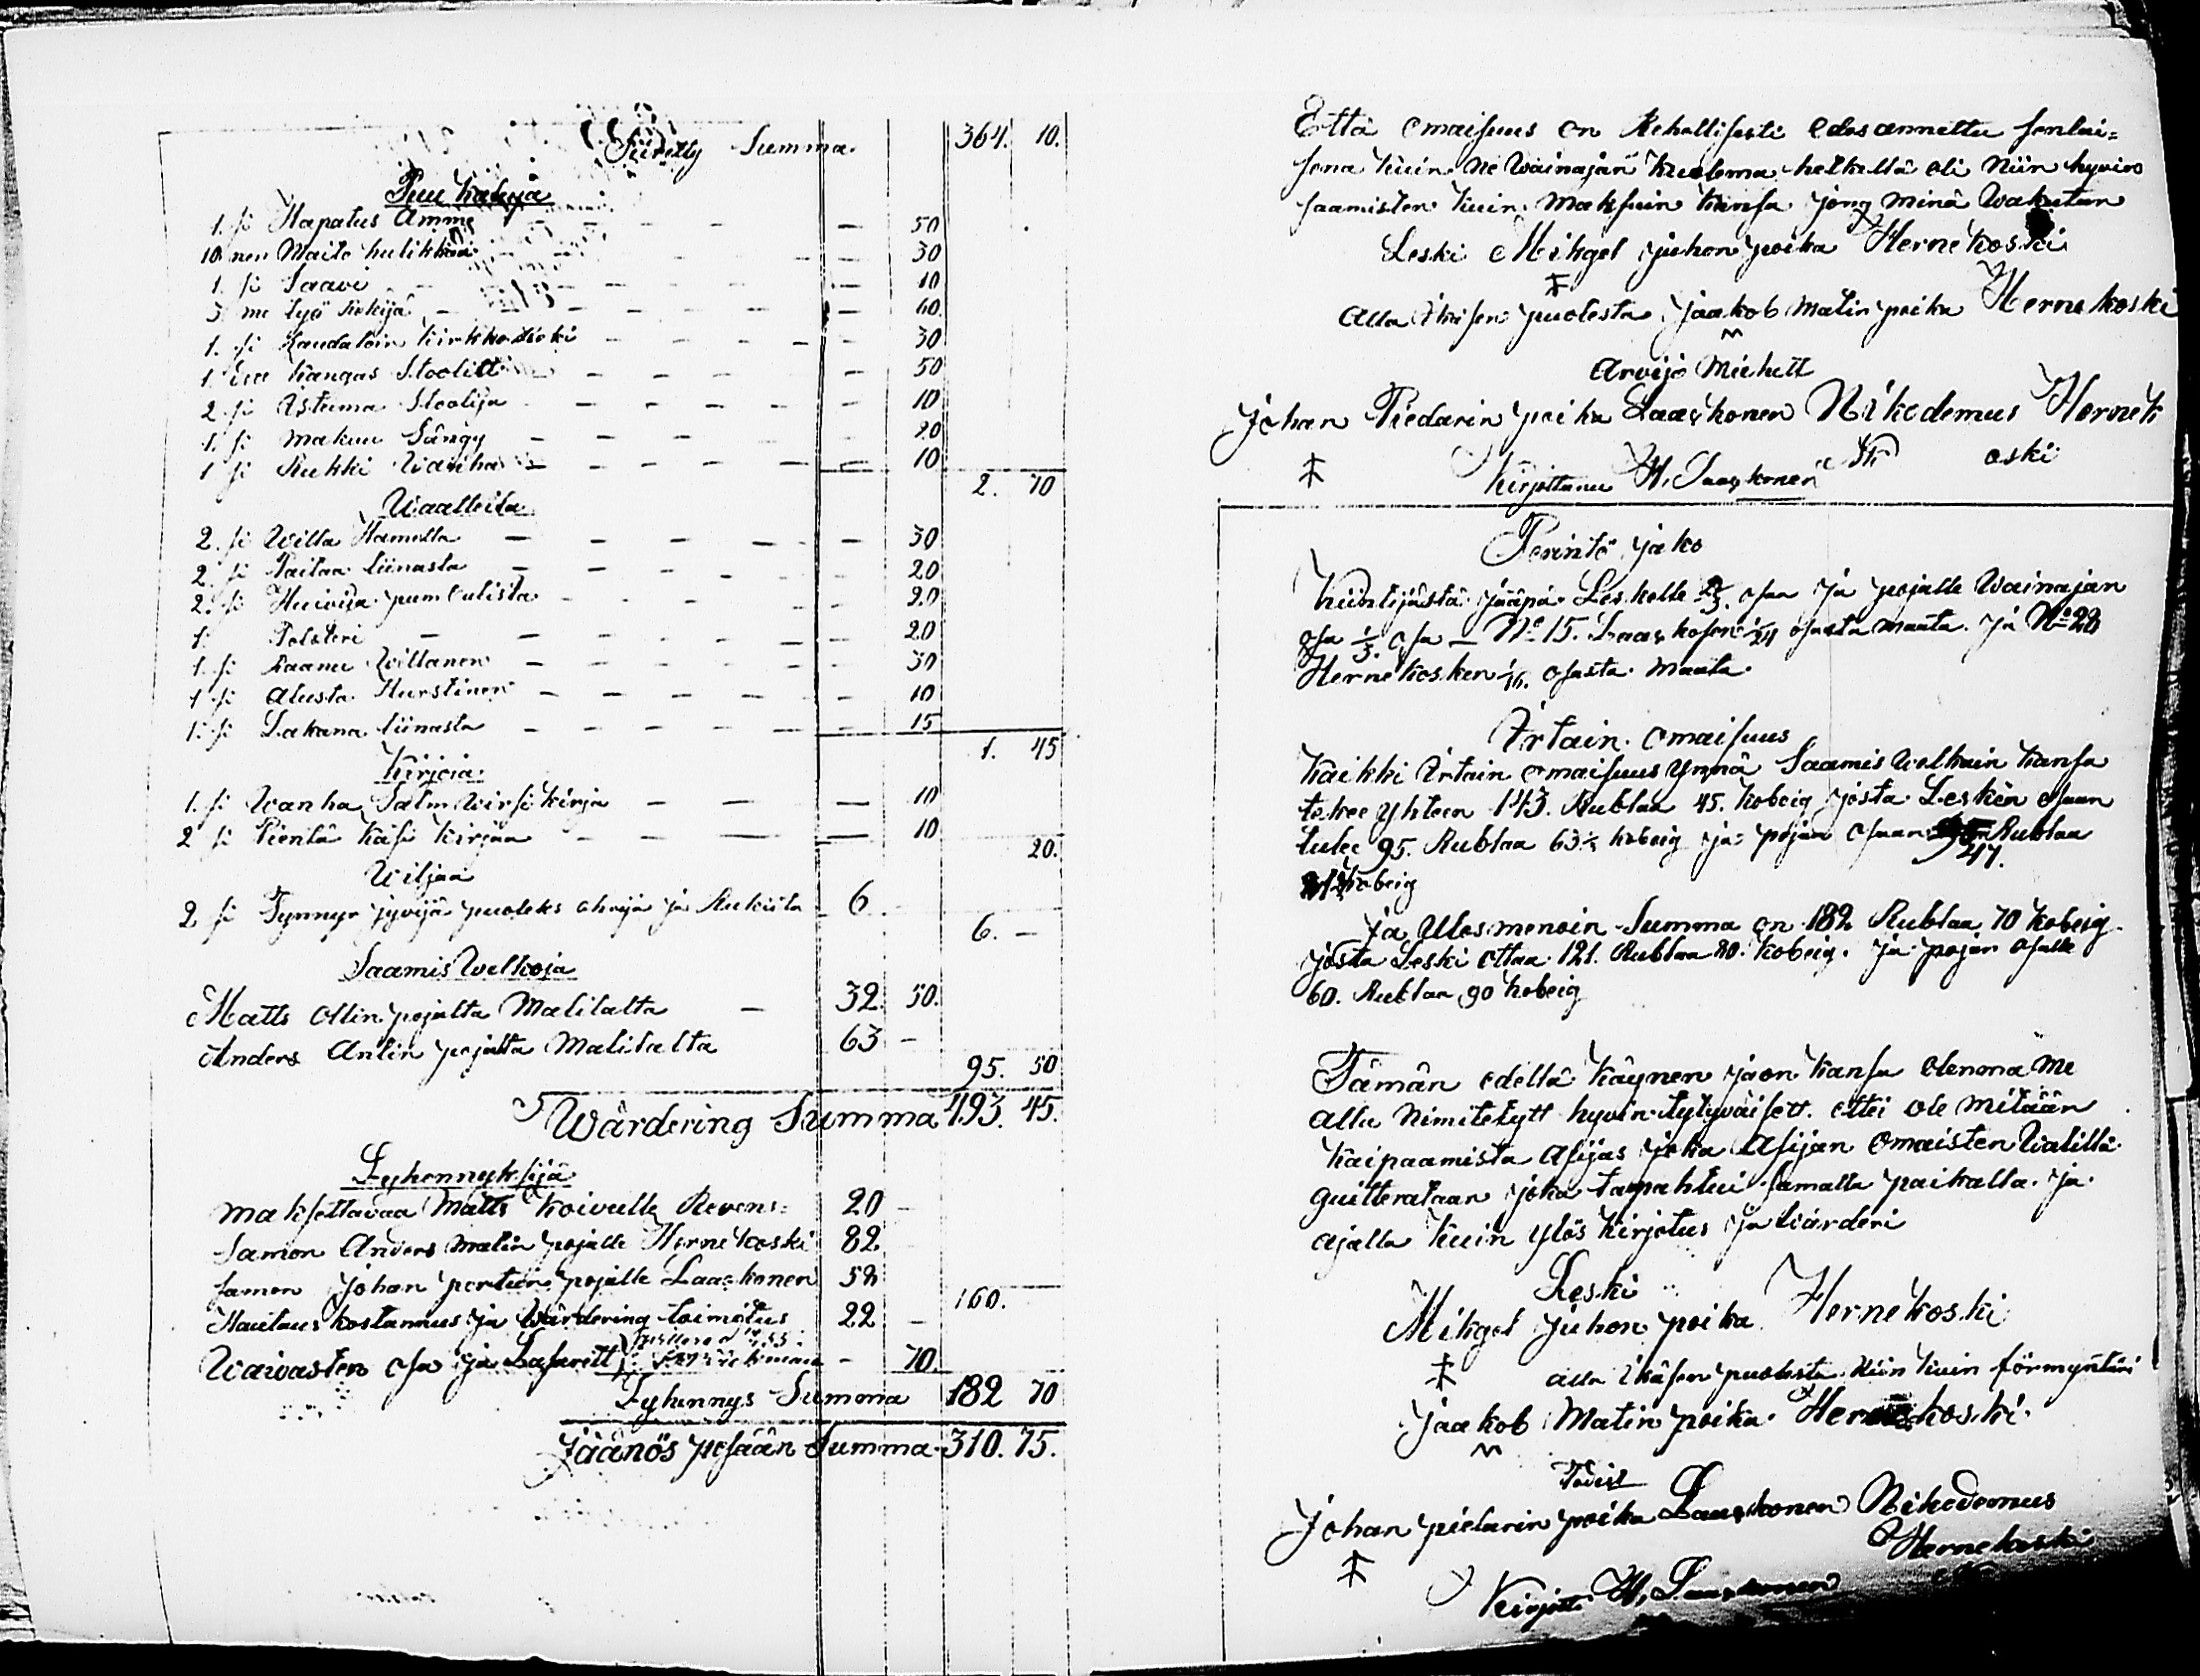 Siiretty Summa 364. 10.
Puu kaluja
1. si Hapatus Amme — 50
10 nen Maito hulikkaa — 30
1. si Saavi — 10
3 me työ kokija — 60
1. si Raudatoin kirkko — 30
1. kangas Stoolit — 50
2. si Istuma Stoolija — 10
1. si makuu Sängy — 20
1 si Rukki Wanha — 10
2. 70
Waatteita
2. si Willa Hametta — 30
2. si Paitaa liinasta — 20
2. si Huivija pumbulista — 20
1. Polsteri — 20
1. si Raanu Willanen — 30
1 si alusta Hurstinen — 10
1. si Lakana liinasta — 15
1. 45
Kirjoja
1. si Wanha Salm Wirsi kirja — 10
2 si Pientä käsi kirjaa — 10
20.
Wiljaa
2 si Tynnyr jyvijä puoleks ohrija ja Rukiita 6
6. —
Saamis Welkoja
Matts Ollin pojalta Matilalta — 32. 50.
Anders Antin pojalta Matilalta 63 —
95. 50
Wärdering Summa 493. 45.
Lyhennyksijä
maksettavaa Matts Koivulle Revons: 20 —
Samon Anders Matin pojalle Hernekoski 82
samon Johan pertun pojalle Laaskonen 58
160.
Hautaus kostannus ja Wärdering toimitus 22 —
Waivasten osa ja Lasarett — 70.
Lyhennys Summa 182 70
Jäänös pesään Summa 310. 75.
Että omaisuus on Rehellisesti edesannettu senlai=
sena kuin ne Wainajan kuolema hetkellä oli niin hyvin
saamisten kuin maksuin kansa jong minä Wakutan
Leski Mikgel juhon poika Hernekoski
Alla Ikäsen puolesta Jaakob Matin poika Hernekoski
Arvijo Miehett
Johan Piedarin poika Laaskonen Nikodemus Hernek
oski
Kirjottanu H. Laaskonen
Perintö jako
Kiintijästä jääpä Leskelle 2/3. osa ja pojalle Wainajan
osa 1/3. osa — No 15. Laaskosen 1/24 osasta maata. ja No 28
Hernekosken 1/16. osasta maata.
Irtain omaisuus
Kaikki Irtain omaisuus Ynnä Saamis Welkain kansa
tekee yhteen 143. Rublaa 45. kobeig josta Lesken osaan
tulee 95. Rublaa 63 1/3 kobeig ja pojan osaan Rublaa
47.
kobeig
Ja Ulosmenoin Summa on 182 Rublaa 70 kobeig.
josta Leski ottaa 121. Rublaa 80. kobeig. ja pojan osalle
60. Rublaa 90 kobeig
Tämän edellä käynen jaon kansa olemma me
alla nimitetytt hyvin tytyväisett. ettei ole mitään
kaipaamista Asijas joka Asijan omaisten Välillä
guitterataan joka tapahtui samalla paikalla. ja
ajalla kuin ylös kirjotus ja Wärderi
Leski
Mikgel juhon poika Hernekoski
alla Ikäsen puolesta niin kuin förmyntäri
Jaakob Matin poika Hernekoski.
Todist
Johan pietarin poika Laaskonen Nikodemus
Hernekoski
Kirjott. H. Laaskonen